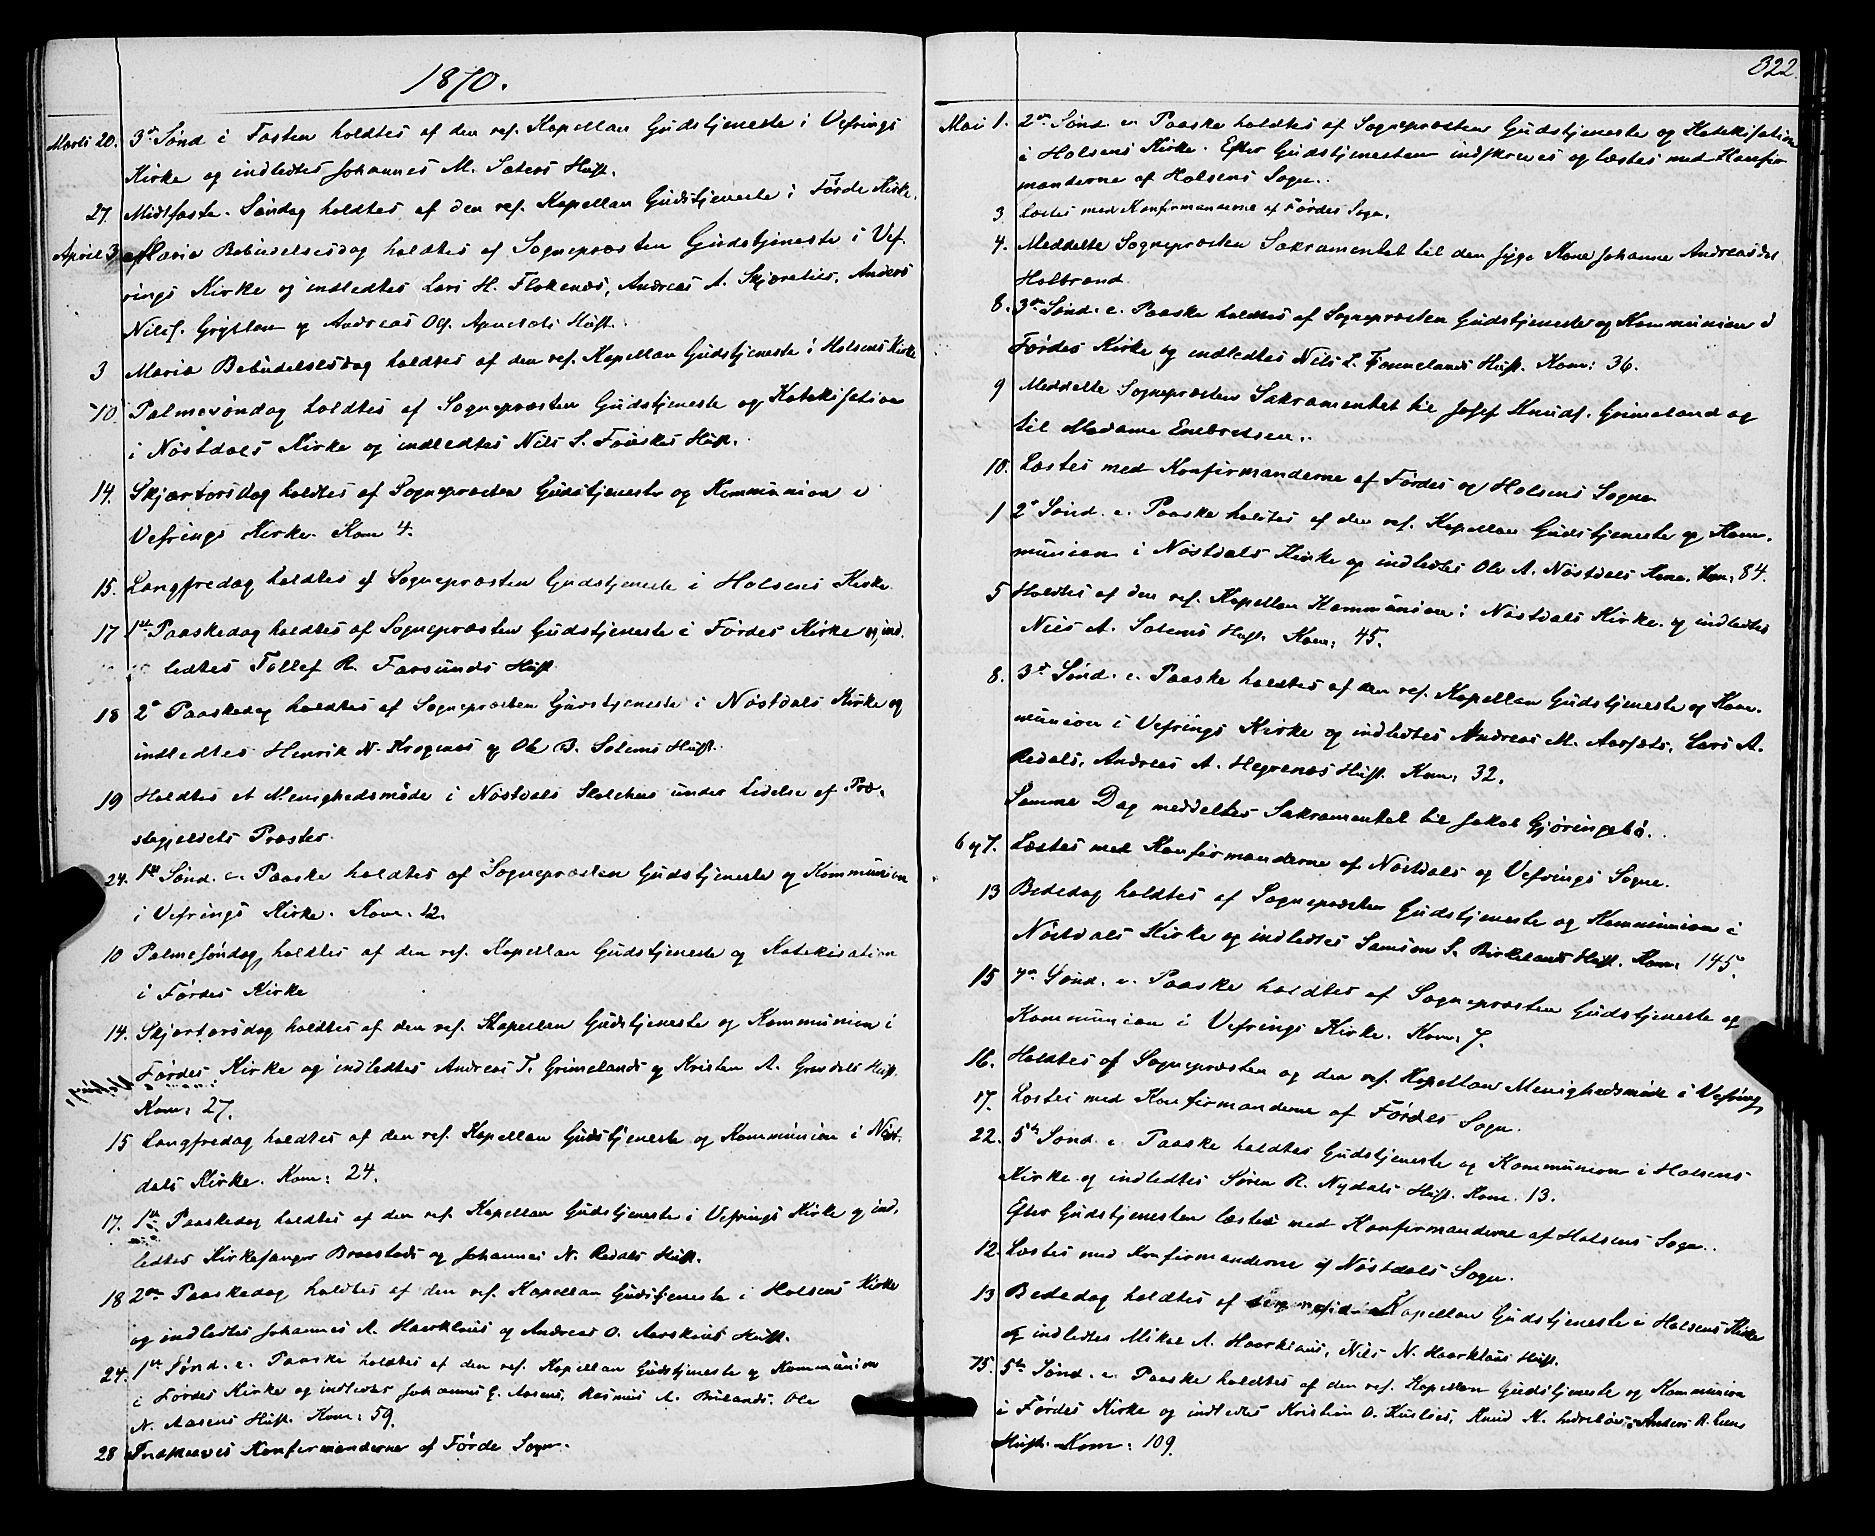 1870.
Marts 20. 3die Sønd i Fasten holdtes af den res. Kapellan Gudstjeneste i Vefrings
Kirke og indledtes Johannes M. Sæters Hust.
27. Midtfaste-Søndag holdtes af den res. Kapellan Gudstjeneste i Førde Kirke.
April 3 Mariæ Bebudelsesdag holdtes af Sognepræsten Gudstjeneste i Vef-
rings Kirke og indledtes Lars H. Flokenæs, Andreas A. Anders
Nils. og Andreas Hust.
3 Mariæ Bebudelsesdag holdtes af den res. Kapellan Gudstjeneste i Holsens Kirke
10. Palmesøndag holdtes af Sognepræsten Gudstjeneste og Katekisation
i Nøstdals Kirke og indledtes Nils S. Hust.
14. Skjærtorsdag holdtes af Sognepræsten Gudstjeneste og Kommunion i
Vefrings Kirke. Kom 4.
15. Langfredag holdtes af Sognepræsten Gudstjeneste i Holsens Kirke
17 1ste Paaskedag holdtes af Sognepræsten Gudstjeneste i Førdes Kirke og ind-
ledtes Tollef R. Farsunds Hust.
18 2den Paaskedag holdtes af Sognepræsten Gudstjeneste i Nøstdals Kirke og
indledtes Henrik N. og Ole B. Solems Hust.
19 Holdtes et Menighedsmøde i Nøstdals under Ledelse af Præ-
stegjeldets Præster.
24. 1ste Sønd. e. Paaske holdtes af Sognepræsten Gudstjeneste og Kommunion
i Vefrings Kirke. Kom. 12.
10 Palmesøndag holdtes af den res. Kapellan Gudstjeneste og Katekisation
i Førdes Kirke
14. Skjærtorsdag holdtes af den res. Kapellan Gudstjeneste og Kommunion i
Førdes Kirke og indledtes Andreas T. Grimelands og Kristen A. Hust.
Kom: 27.
15 Langfredag holdtes af den res. Kapellan Gudstjeneste og Kommunion i Nøst-
dals Kirke. Kom: 24.
17. 1ste Paaskedag holdtes af den res. Kapellan Gudstjeneste i Vefrings Kirke og ind-
ledtes Kirkesanger og Johannes N. Redals Hust.
18 2den Paaskedag holdtes af den res. Kapellan Gudstjeneste i Holsens Kirke
og indledtes Johannes A. Haarklaus og Andreas O. Hust.
24. 1ste Sønd. e. Paaske holdtes af den res. Kapellan Gudstjeneste og Kommunion
i Førdes Kirke og indledtes Johannes G. Aasens, Rasmus A. Ole
N. Aasens Hust. Kom: 59.
28 Indskreves Konfirmanderne af Førde Sogn.
322.
Mai 1. 2den Sønd. e. Paaske holdtes af Sognepræsten Gudstjeneste og Katekisation
i Holsens Kirke. Efter Gudstjenesten indskreves og læstes med Konfir-
manderne af Holsens Sogn.
3 Læstes med Konfirmanderne af Førdes Sogn.
4. Meddelte Sognepræsten Sakramentet til den syge Kone Johanne Andreasdtr
Holbrand.
8. 3die Sønd. e. Paaske holdtes af Sognepræsten Gudstjeneste og Kommunion i
Førdes Kirke og indledtes Nils L. Hust. Kom: 36.
9 Meddelte Sognepræsten Sakramentet til Josef Knuds. Grimeland og
til Madame Enebretsen.
10. Læstes med Konfirmanderne af Førdes og Holsens Sogne
1 2den Sønd. e. Paaske holdtes af den res. Kapellan Gudstjeneste og Kom-
munion i Nøstdals Kirke og indledtes Ole A. Nøstdals Kone. Kom: 84.
5 Holdtes af den res. Kapellan Kommunion i Nøstdals Kirke og indledtes
Nils A. Solems Hust. Kom: 45.
8. 3die Sønd. e. Paaske holdtes af den res. Kapellan Gudstjeneste og Kom-
munion i Vefrings Kirke og indledtes Andreas M. Lars A.
Redals, Andreas A. Hegrenæs Hust. Kom: 32.
Samme Dag meddeltes Sakramentet til Jakob
6 og 7. Læstes med Konfirmanderne af Nøstdals og Vefrings Sogne.
13 Bededag holdtes af Sognepræsten Gudstjeneste og Kommunion i
Nøstdals Kirke og indledtes Samson S. Birkelands Hust. Kom: 145.
15 4de Sønd. e. Paaske holdtes af Sognepræsten Gudstjeneste og
Kommunion i Vefrings Kirke. Kom: 7.
16. Holdtes af Sognepræsten og den res. Kapellan Menighedsmøde i Vefring
17. Læstes med Konfirmanderne af Førdes Sogn.
22. 5te Sønd. e. Paaske holdtes Gudstjeneste og Kommunion i Holsens
Kirke og indledtes Søren R. Nydals Hust. Kom. 13.
Efter Gudstjenesten læstes med Konfirmanderne af Holsens Sogn.
12. Læstes med Konfirmanderne af Nøstdals Sogn.
13 Bededag holdtes af Kapellan Gudstjeneste i Holsens Kirke
og indledtes Mikal A. Haarklaus, Nils N. Haarklaus Hust.
15. 5te Sønd. e. Paaske holdtes af den res. Kapellan Gudstjeneste og Kommunion
i Førdes Kirke og indledtes Kristian O. Knud K. Anders R.
Hust. Kom: 109.